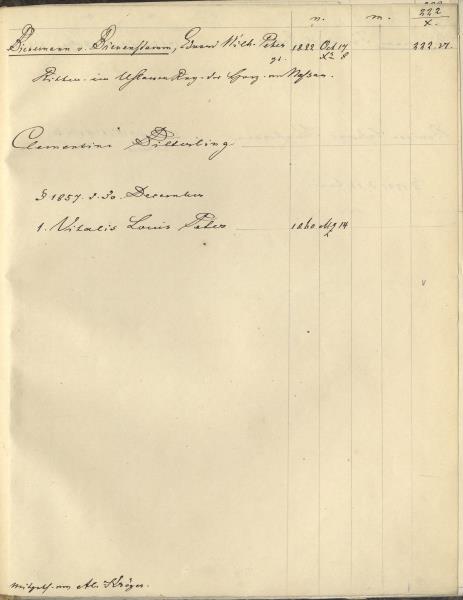 n. m. 222
x.
Bienemann v. Bienenstamm, Eduard Wilh. Peter 1822 Oct 17 222.27.
gt. X 8
Rittm. im Uhlanen Reg. des Herz. von Nassau.
Clementine Dilterling
1857. d. 30. December
1. Vitalis Louis Peter 1860 14
2
v
mitgeth. von Al. Kröger.